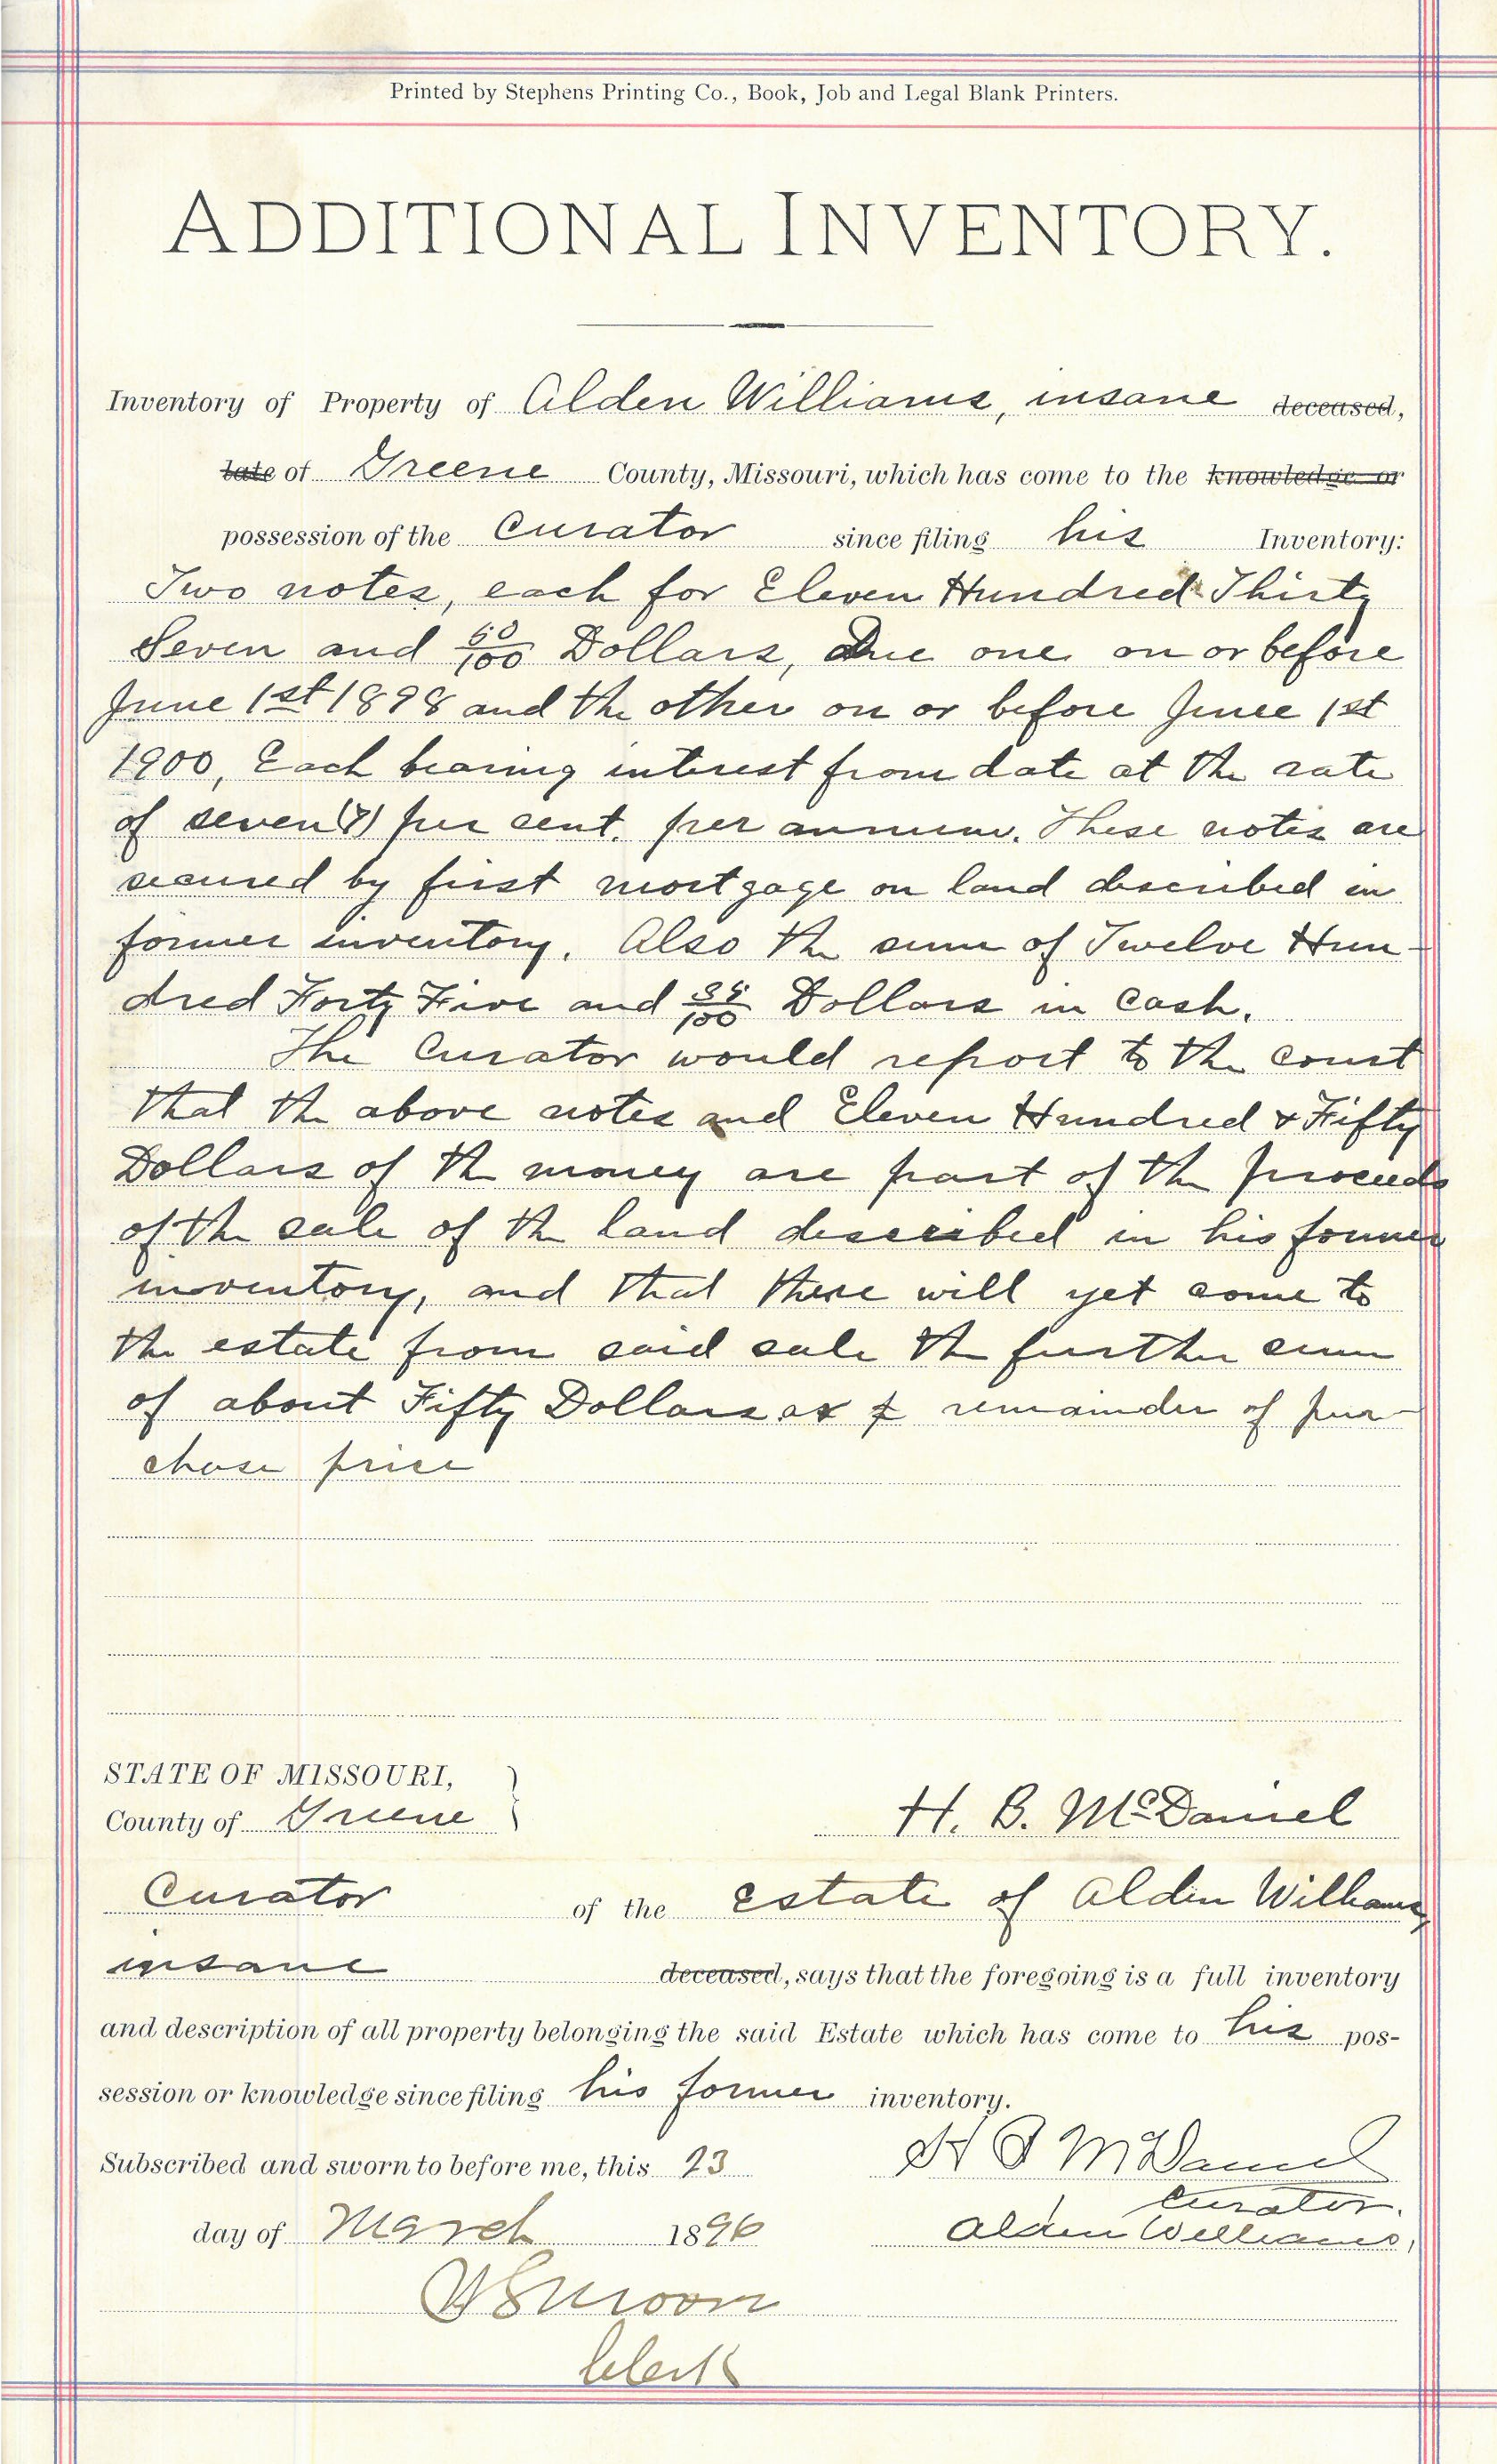 Printed by Stephens Printing Co., Book, Job and Legal Blank Printers.
ADDITIONAL INVENTORY.
Inventory of Property of Alden Williams, insane deceased,
late of Greene County, Missouri, which has come to the knowledge or
possession of the Curator since filing his Inventory:
Two notes, each for Eleven Hundred Thirty
Seven and 50/100 Dollars, Due one on or before
June 1st 1898 and the other on or before June 1st
1900, Each bearing interest from date at the rate
of seven (7) per cent. per annum. These notes are
secured by first mortgage on land described in
former inventory. Also the sum of Twelve Hun-
dred Forty Five and /100 Dollars in Cash.
The Curator would report to the court
that the above notes and Eleven Hundred & Fifty
Dollars of the money are part of the proceeds
of the sale of the land described in his former
inventory, and that there will yet come to
the estate from said sale the further sum
of about Fifty Dollars as remainder of pur-
chase price
STATE OF MISSOURI,
County of Greene
H. B. McDaniel
Curator of the estate of Alden Williams,
insane deceased, says that the foregoing is a full inventory
and description of all property belonging the said Estate which has come to his pos-
session or knowledge since filing his former inventory.
Subscribed and sworn to before me, this 23 H B McDaniel
Curator.
day of March 1896 Alden Williams,
Moon
Clerk